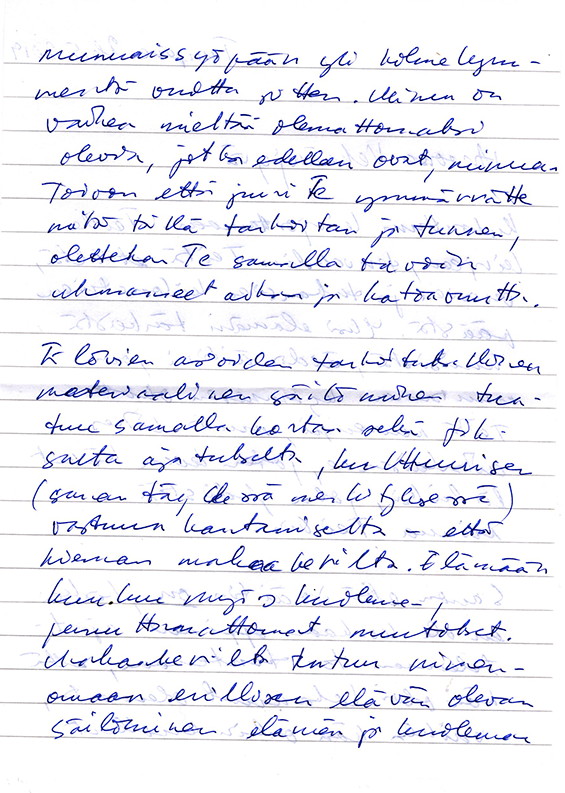 munuaissyöpään yli kolmekym-
mentä vuotta sitten. Minun on
vaikea mieltää olemattomaksi
olevia, jotka edellen ovat, minua.
Toivon että juuri Te ymmärrätte
mitä tällä tarkoitan ja tunnen,
olettehan Te samalla tavoin
uhmanneet aikaa ja katoavuutta.
Elävien arvoiden tarkoituksellinen
materiaalinen säilöminen tun-
tuu samalla kertaa sekä fik-
sulta ajatukselta, kulttuurisen
(sanan täydessä merkityksessä)
vastuun kantamiselta – että
hieman makaaberilta. Elämään
kun kuuluu myös kuolema,
peruuttamattomat muutokset.
Makaaberilta tuntuu nimen-
omaan erillisen elävän olevan
säilöminen elämän ja kuoleman